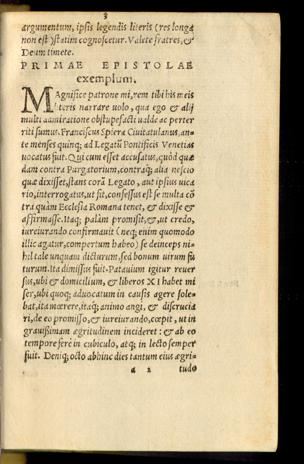 3
argumentum, ipsis legendis literis (res longa
non est) statim cognoscetur. Valete fratres, &
Deum timete.
PRIMAE EPISTOLAE
exemplum.
MAgnifice patrone mi, rem tibi his meis
literis narrare uolo, qua ego & alij
multi admiratione obstupefacti ualde ac perter
riti sumus. Franciscus Spiera Ciuitatulanus, an-
te menses quinq; ad Legatū Pontificis Venetias
uocatus fuit. Qui cum esset accusatus, quòd quæ
dam contra Purgatorium, contraq; alia nescio
quæ dixisset, stans corā Legato, aut ipsius uica
rio, interrogatus, ut sit, confessus est se multa cō
tra quàm Ecclesia Romana tenet, & dixisse &
affirmasse. Itaq; palàm promisit, &, ut credo,
iureiurando confirmauit (neq; enim quomodo
illic agatur, compertum habeo) se deinceps ni-
hil tale unquam dicturum, sed bonum uirum fu
turum. Ita dimissus fuit. Patauium igitur reuer
sus, ubi & domicilium, & liberos XI habet mi
ser, ubi quoq; aduocatum in causis agere sole-
bat, ita mœrere, itaq; animo angi, & discrucia
ri, de eo promisso, & iureiurando, cœpit, ut in
grauißimam ægritudinem incideret: & ab eo
tempore ferè in cubiculo, atq; in lecto semper
fuit. Deniq; octo abhinc dies tantum eius ægri-
a 2 tudo